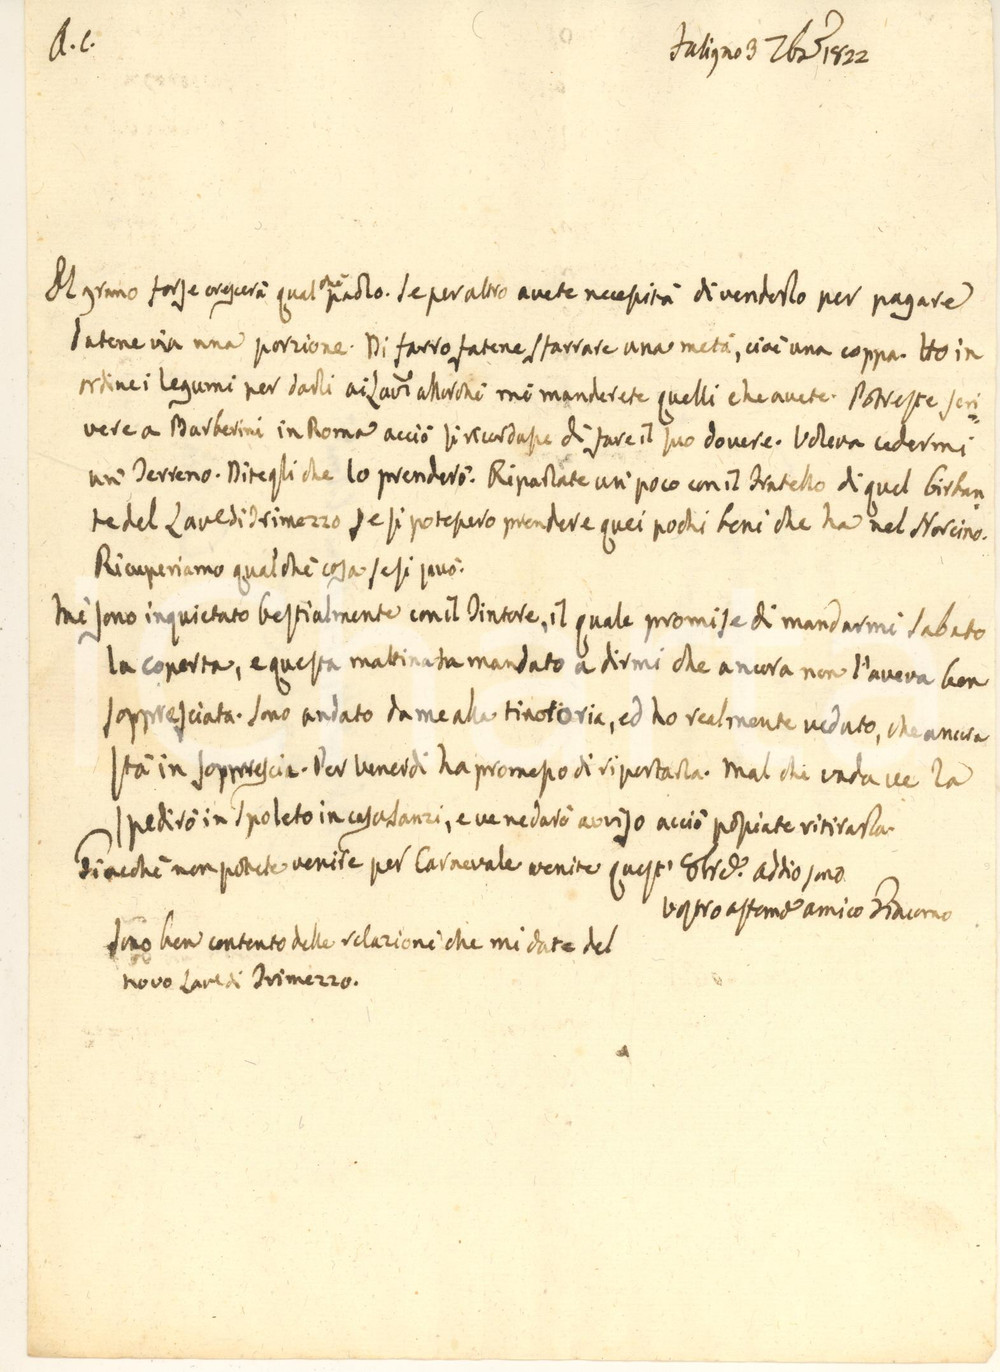 A. C.
Foligno 3 7bre 1822
Il grano forse crescerà qualche paolo. Se per altro avete necessità di venderlo per pagare
datene via una porzione. Di farro fatene sfarrare una metà, cioè una coppa. Ho in
ordine i legumi per darli ai Lavri allorché mi manderete quelli che avete. Potreste scri=
vere a Barberini in Roma acciò si ricordasse di fare il suo dovere. Voleva cedermi
un Terreno. Ditegli che lo prenderò. Riparlate un poco con il Fratello di quel birban=
te del Lave di Trimezzo se si potessero prendere quei pochi beni che ha nel Norcino.
Ricuperiamo qualche cosa se si può.
Mi sono inquietato bestialmente con il Tintore, il quale promise di mandarmi Sabato
la coperta, e questa mattina ha mandato a dirmi che ancora non l'aveva ben
soppresciata. Sono andato da me alla tintoria, ed ho realmente veduto, che ancora
stà in soppressia. Per Venerdi ha promesso di riportarla. Mal che vada ve la
spedirò in Spoleto in casa Sanzi, e ve ne darò avviso acciò possiate ritirarla.
Giacché non potete venire per Carnevale venite quest' 8bre. addio sono
Vostro affemo amico Giacomo
Sono ben contento delle relazioni che mi date del
novo Lave di Trimezzo.